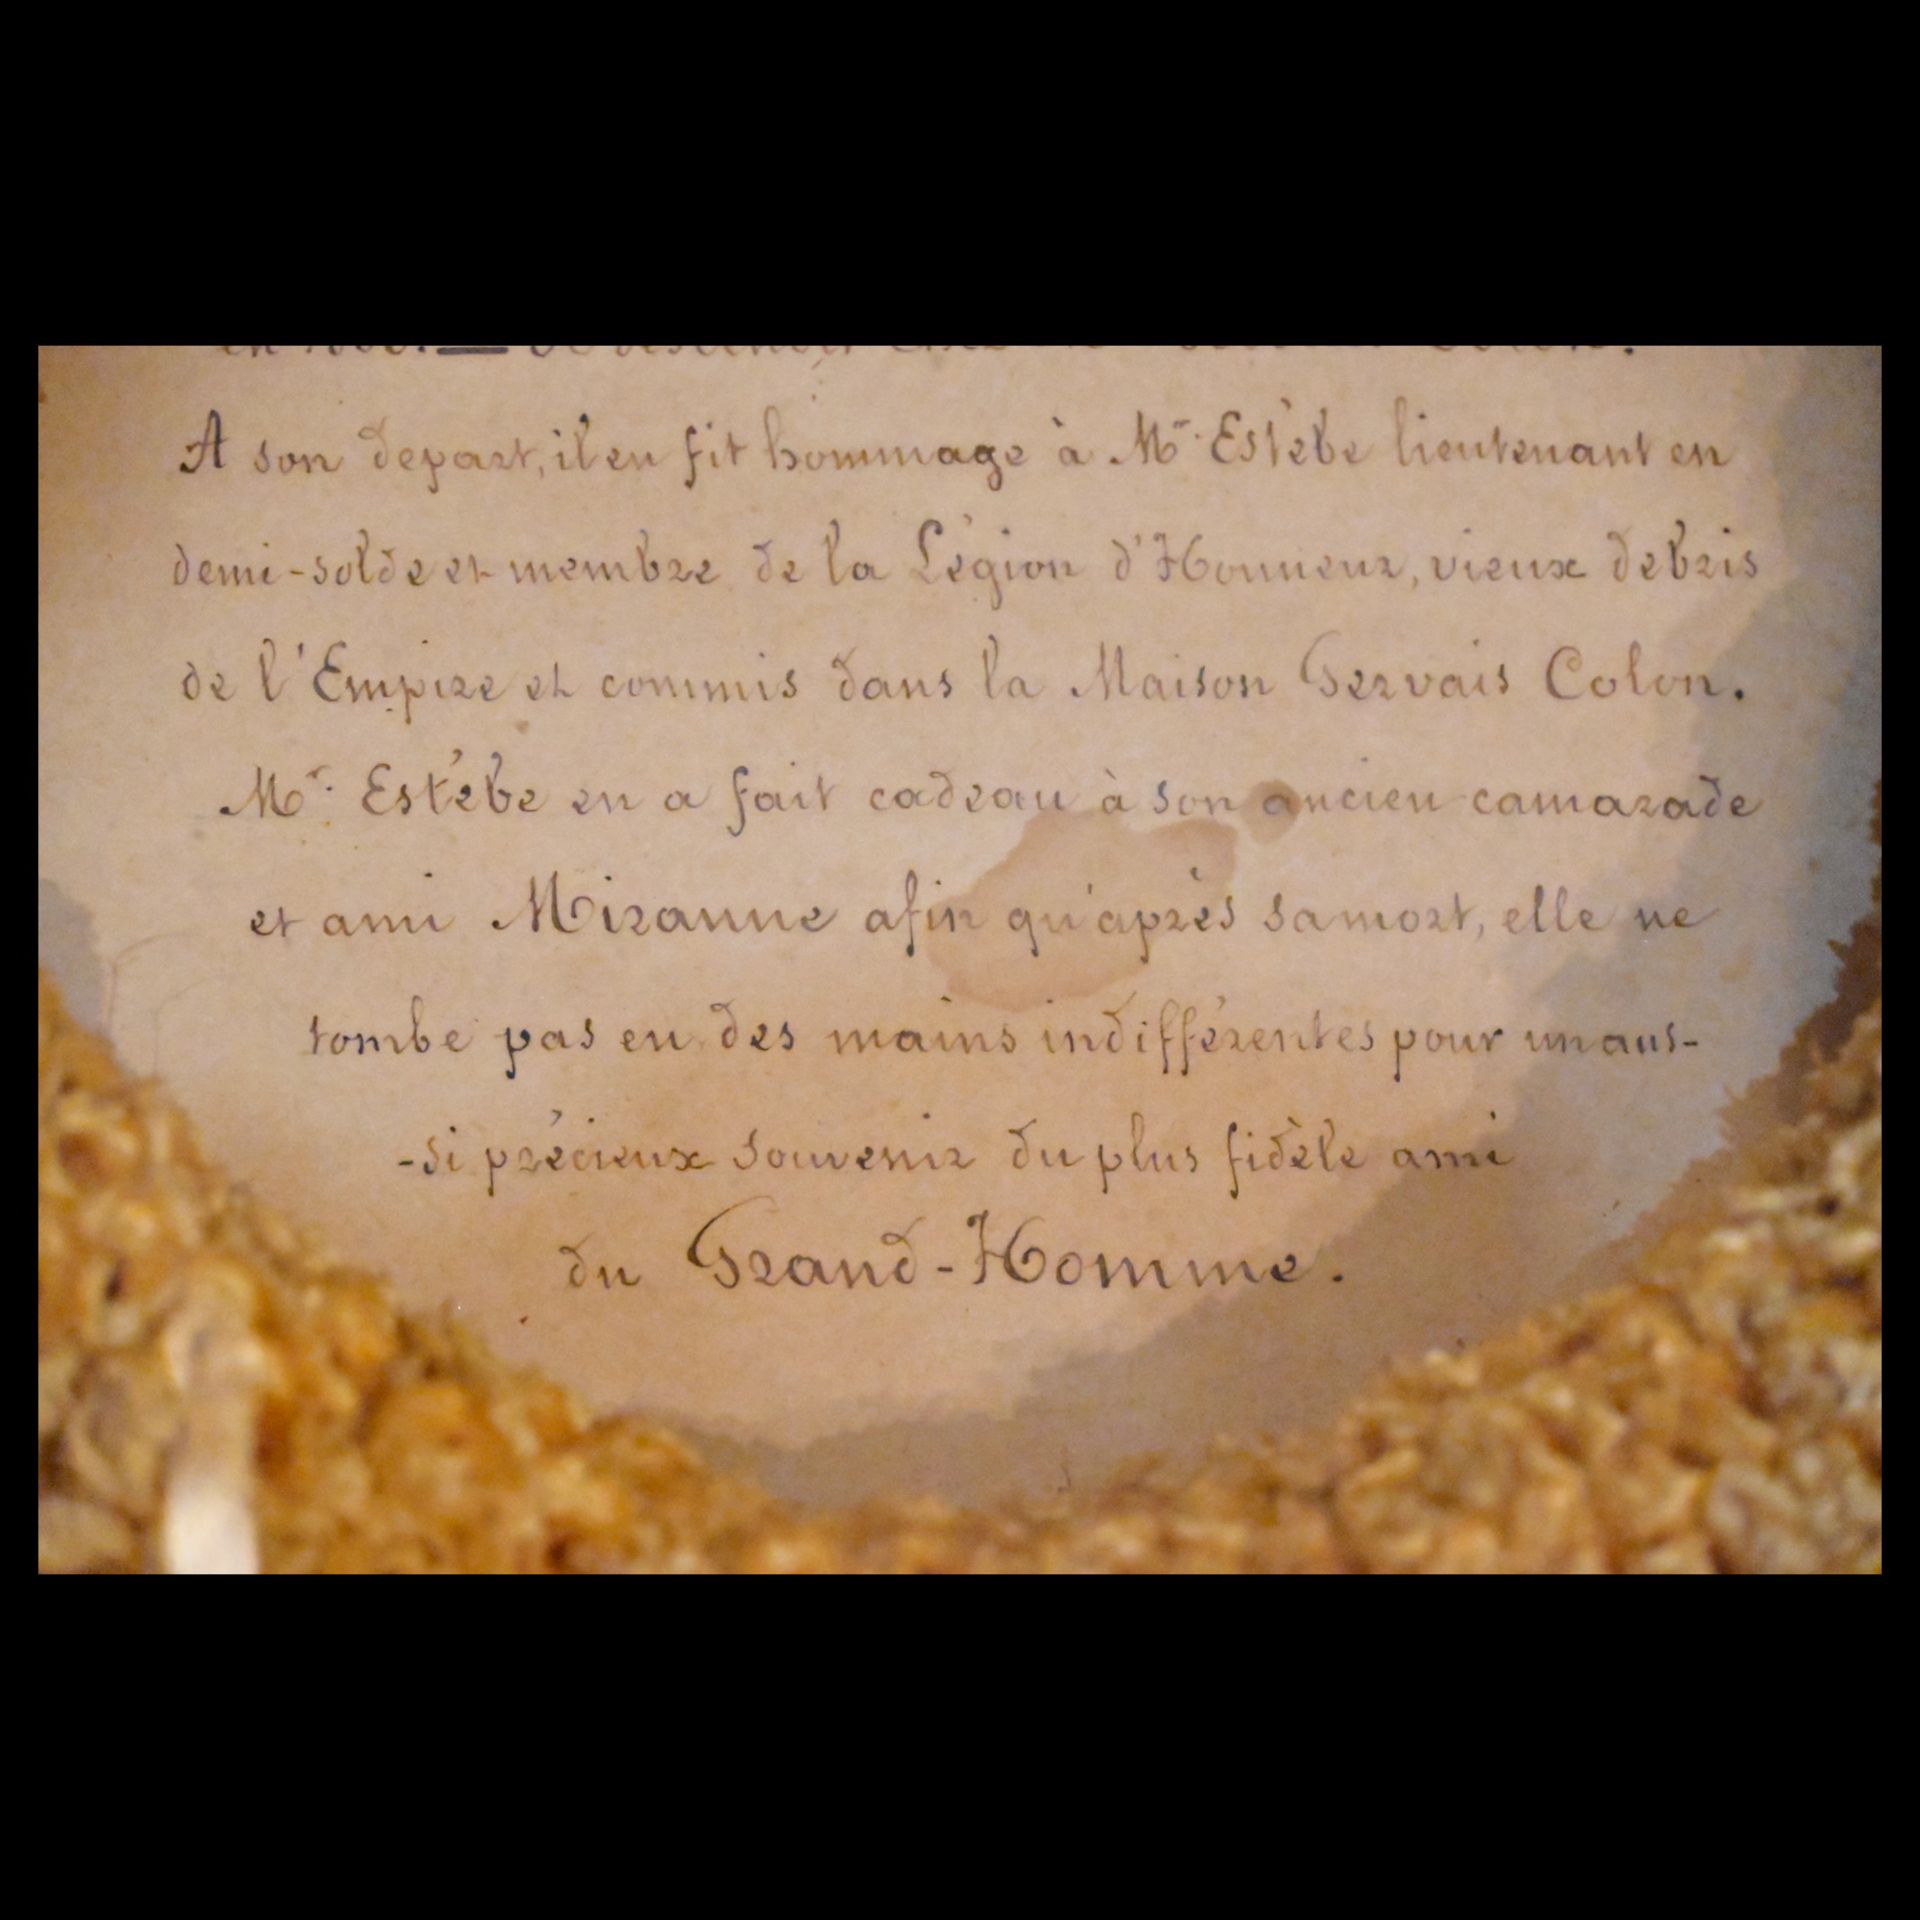 A son depart, il en fit hommage à Mr. Estèbe lieutenant en
demi-solde et membre de la Légion d'Honneur, vieux debris
de l'Empire et commis dans la Maison Gervais Colon.
Mr. Estèbe en a fait cadeau à son ancien camarade
et ami Miranne afin qu'après sa mort, elle ne
tombe pas en des mains indifférentes pour un aus-
-si précieux souvenir du plus fidèle ami
du Grand-Homme.